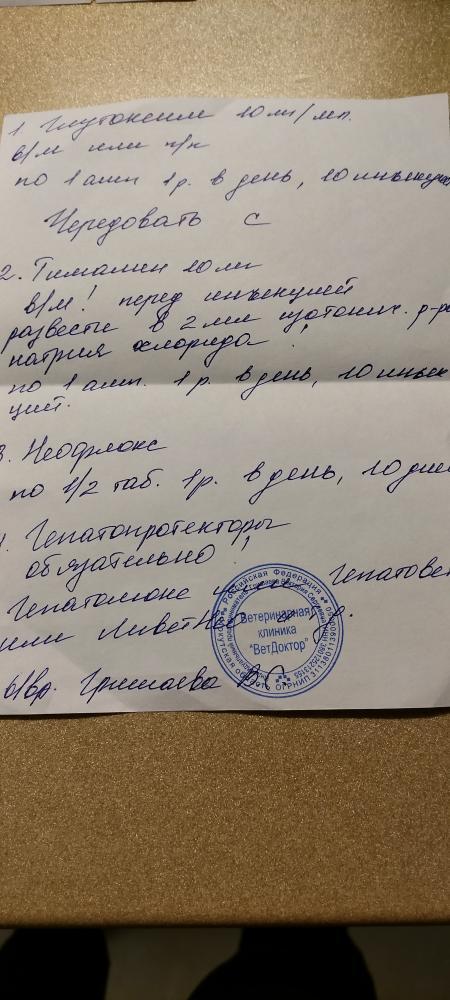 1 Глутоксим 10мг/мл.
в/м или п/к
по 1 амп 1 р. в день, 10 инъекци
Чередовать с
2. Тималин 10 мг
в/м! перед инъекцией
развести в 2 мл изотонич. р-ра
натрия хлорида!
по 1 амп. 1 р. в день, 10 инъек
ций.
3. Неофлокс
по 1/2 таб. 1 р. в день, 10 дне
Гепатопротекторы
обязательно!
Гепатолюкс Гепатове
или
в/вр. Гришаева
Российская Федерация
Ветеринарная
клиника
"ВетДоктор"